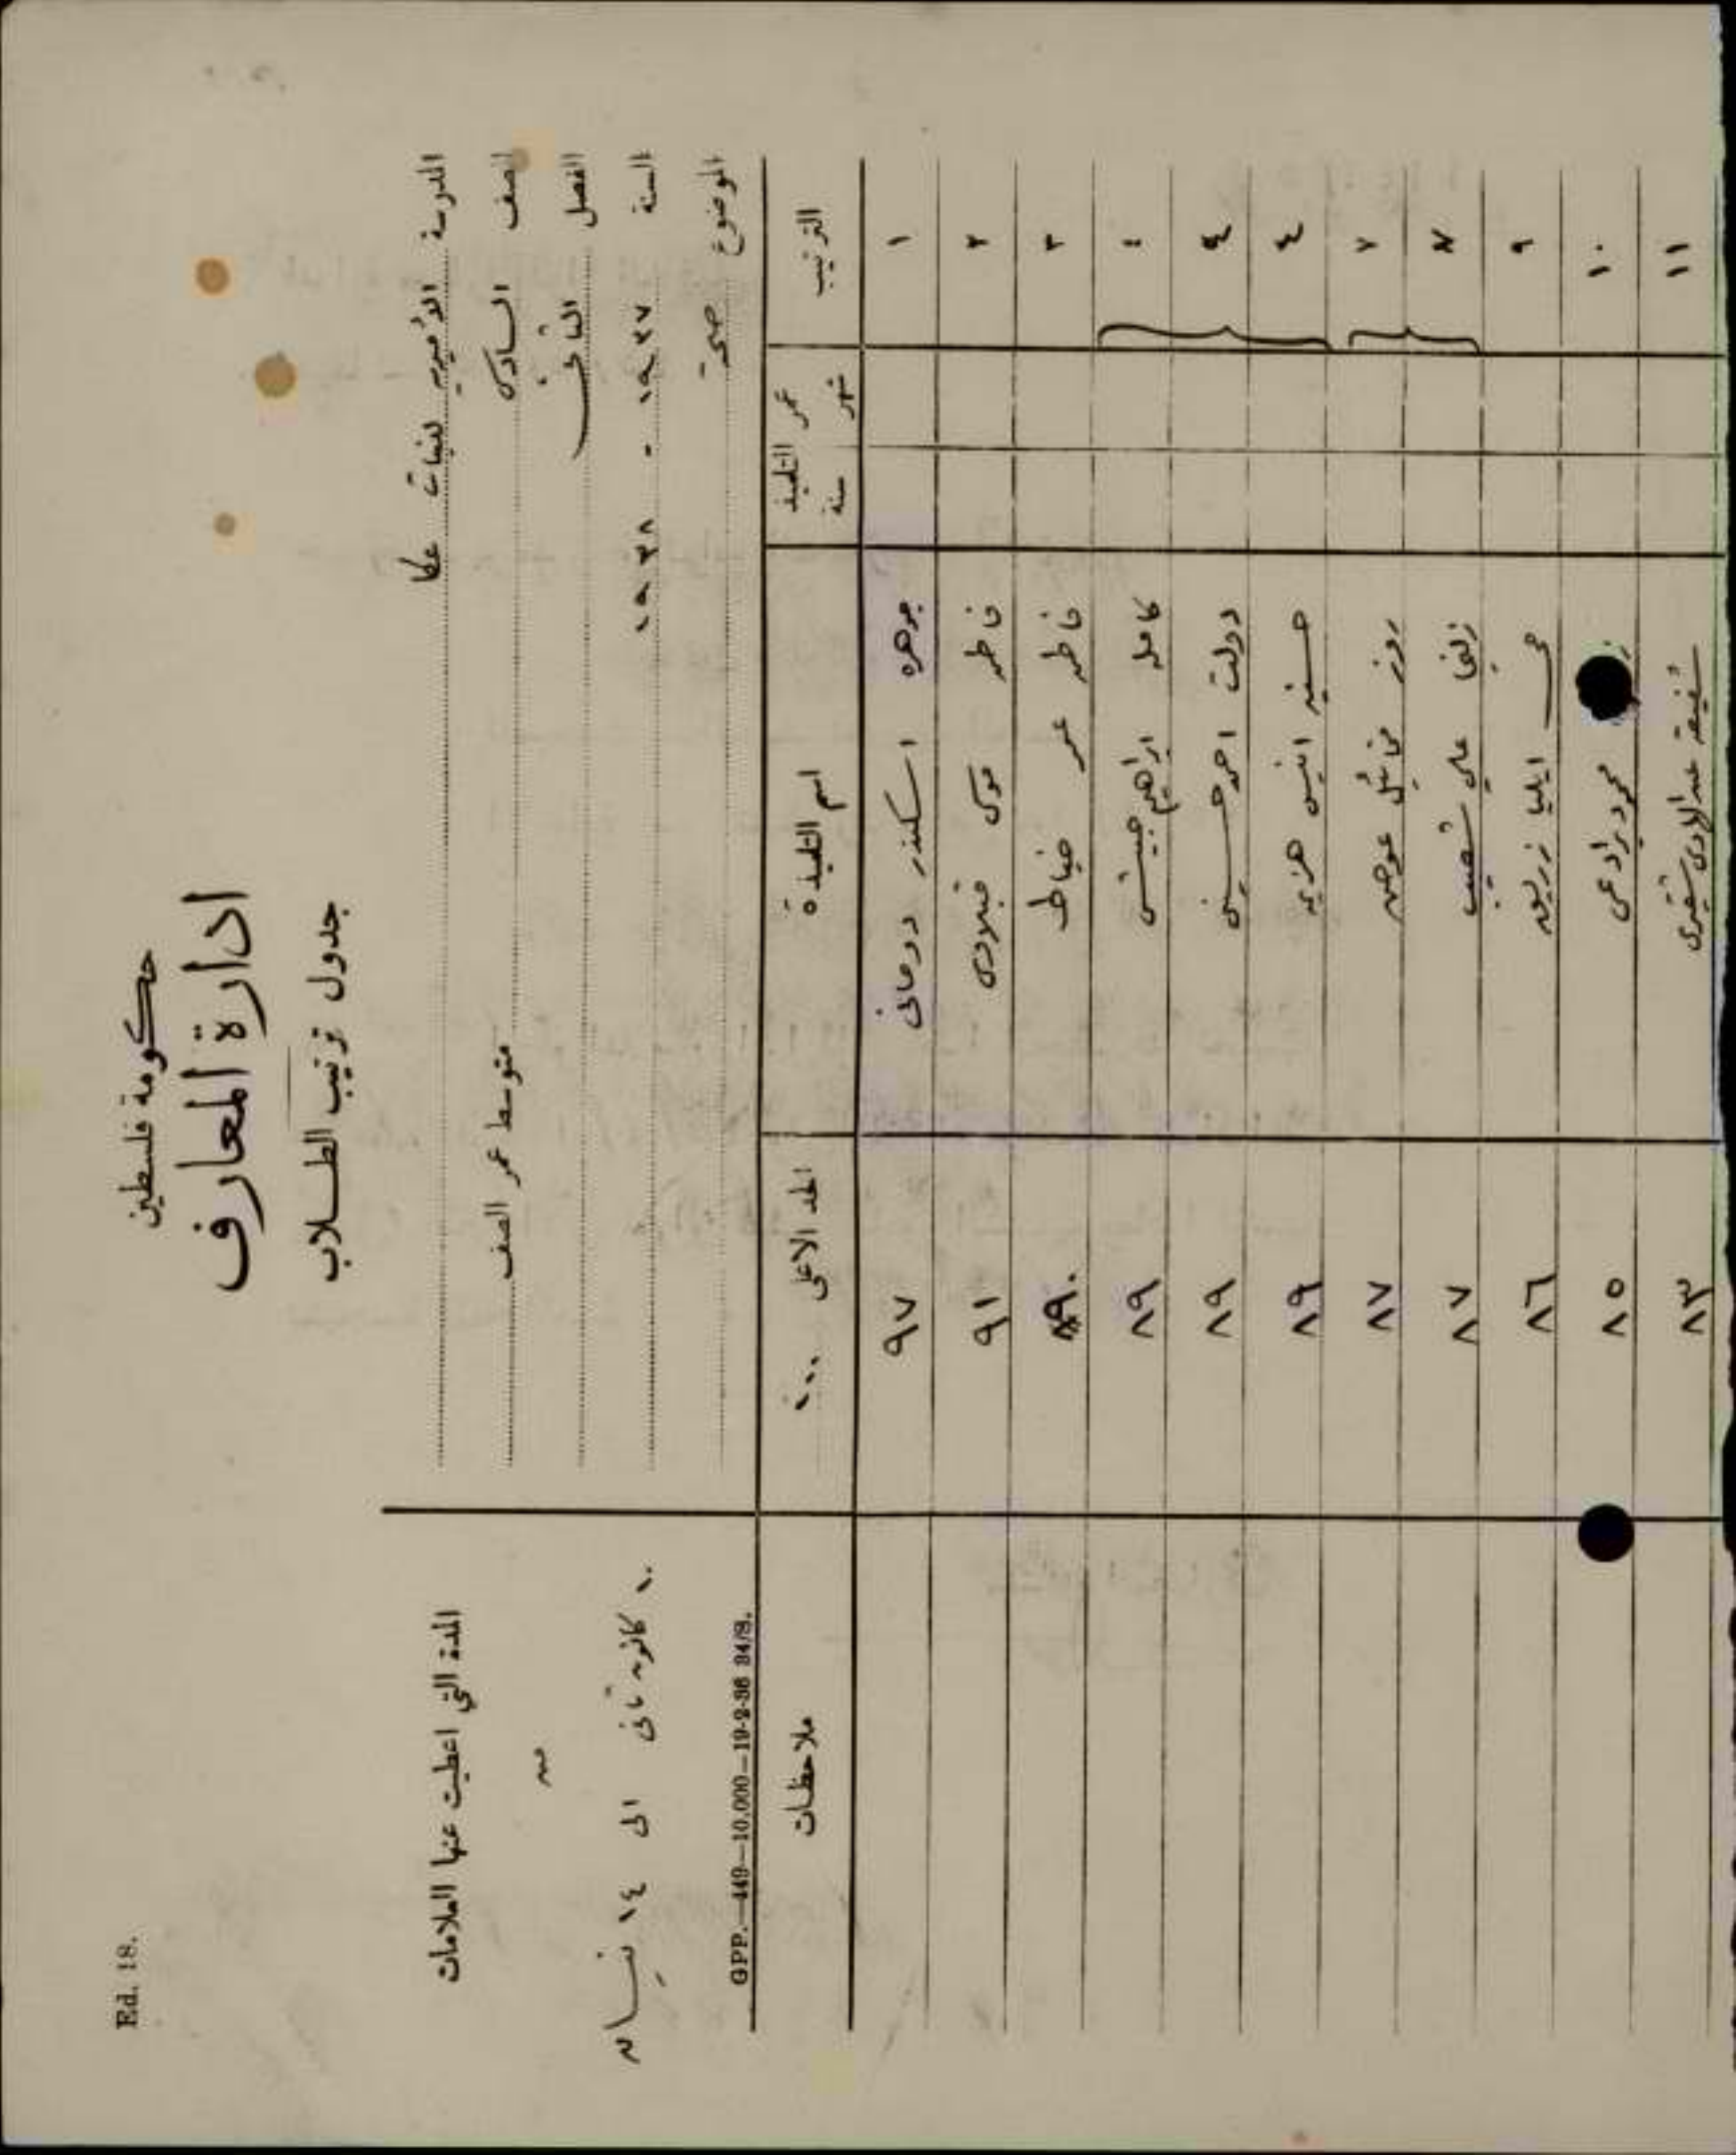 Ed. 18.
حكومة فلسطين
ادارة المعارف
جدول ترتيب الطلاب
المدرسة الأميرية للبنات عكا
الصف السادس متوسط عمر الصف
الفصل الثاني
السنة ١٩٣٧ - ١٩٣٨
الموضوع صحة
المدة التي اعطيت عنها العلامات
من
١٠ كانون ثاني الى ١٤ نيسان
GPP.—449—10.000—19-2-36 34/S.
الترتيب عمر التلميذ سنة شهر اسم التلميذة الحد الاعلى ١٠٠ ملاحظات
١ جوهره اسكندر درحانى ٩٧
٢ فاطمه موسى ٩١
٣ فاطمه عمر خياط ٩٠
٤ كامله ابراهيم حبيشي ٨٩
٤ دولت احمد حسيني ٨٩
٤ انيس ٨٩
٧ روز مخائيل عوض ٨٧
٧ زلفا علي شعيب ٨٧
٩ مي ايليا زريق ٨٦
١٠ محمود برادعى ٨٥
١١ شفيقة عبد الهادى شقيرى ٨٣